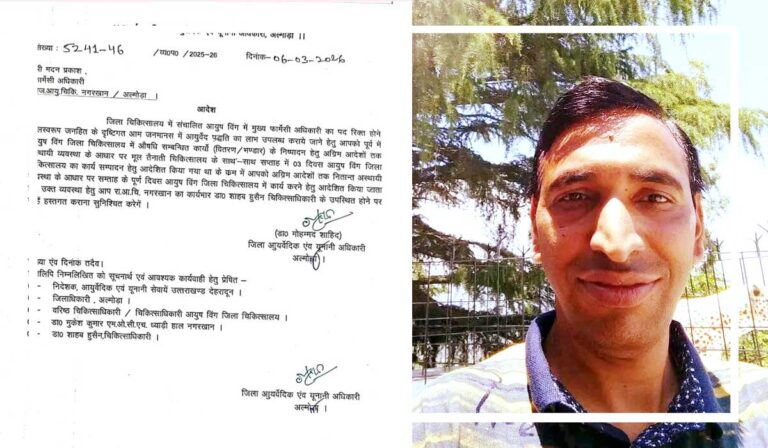 एवं यूनानी अधिकारी, अल्मोड़ा ।।
ख्या : 5241-46 /व्य0प0 / 2025-26 दिनांक- 06-03-2026
री मदन प्रकाश,
फार्मेसी अधिकारी
ज.आयु.चिकि. नगरखान / अल्मोड़ा ।
आदेश
जिला चिकित्सालय में संचालित आयुष विंग में मुख्य फार्मेसी अधिकारी का पद रिक्त होने
लस्वरूप जनहित के दृष्टिगत आम जनमानस में आयुर्वेद पद्धति का लाभ उपलब्ध कराये जाने हेतु आपको पूर्व में
युष विंग जिला चिकित्सालय में औषधि सम्बन्धित कार्यो (वितरण/भण्डार) के निष्पादन हेतु अग्रिम आदेशों तक
थायी व्यवस्था के आधार पर मूल तैनाती चिकित्सालय के साथ-साथ सप्ताह में 03 दिवस आयुष विंग जिला
कित्सालय का कार्य सम्पादन हेतु आदेशित किया गया था के क्रम में आपको अग्रिम आदेशों तक नितान्त अस्थायी
वस्था के आधार पर सप्ताह के पूर्ण दिवस आयुष विंग जिला चिकित्सालय में कार्य करने हेतु आदेशित किया जाता
उक्त व्यवस्था हेतु आप रा.आ.चि. नगरखान का कार्यभार डा0 शाहब हुसैन चिकित्साधिकारी के उपस्थित होने पर
हें हस्तगत कराना सुनिश्चित करेगें ।
(डा0 मोहम्मद शाहिद)
जिला आयुर्वेदिक एंव यूनानी अधिकारी
अल्मोड़ा ।
ख्या एंव दिनांक तदैव।
लिपि निम्नलिखित को सूचनार्थ एवं आवश्यक कार्यवाही हेतु प्रेषित –
- निदेशक, आयुर्वेदिक एवं यूनानी सेवायें उत्तराखण्ड देहरादून ।
- जिलाधिकारी, अल्मोड़ा ।
- वरिष्ठ चिकित्साधिकारी / चिकित्साधिकारी आयुष विंग जिला चिकित्सालय ।
- डा0 मुकेश कुमार एम.ओ.सी.एच. ध्याड़ी हाल नगरखान ।
- डा0 शाहब हुसैन,चिकित्साधिकारी ।
जिला आयुर्वेदिक एंव यूनानी अधिकारी
अल्मोड़ा ।